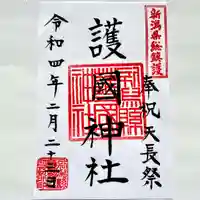 新潟県総鎮護
奉祝天長祭
護國神社
令和四年二月二十三日